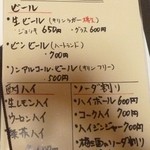 ビール
・生ビール（キリンラガー
・ジョッキ 650円・グラス 600円
・ビンビール（ハートランド）
・700円
・ノンアルコール・ビール（キリンフリー）
・500円
ハイ
・生レモンハイ
・ウーロンハイ
ハイ
・ソーダ割り
・ハイボール 600円
・コークハイ 700円
・ハイジンジャー 700円
ソーダ割り